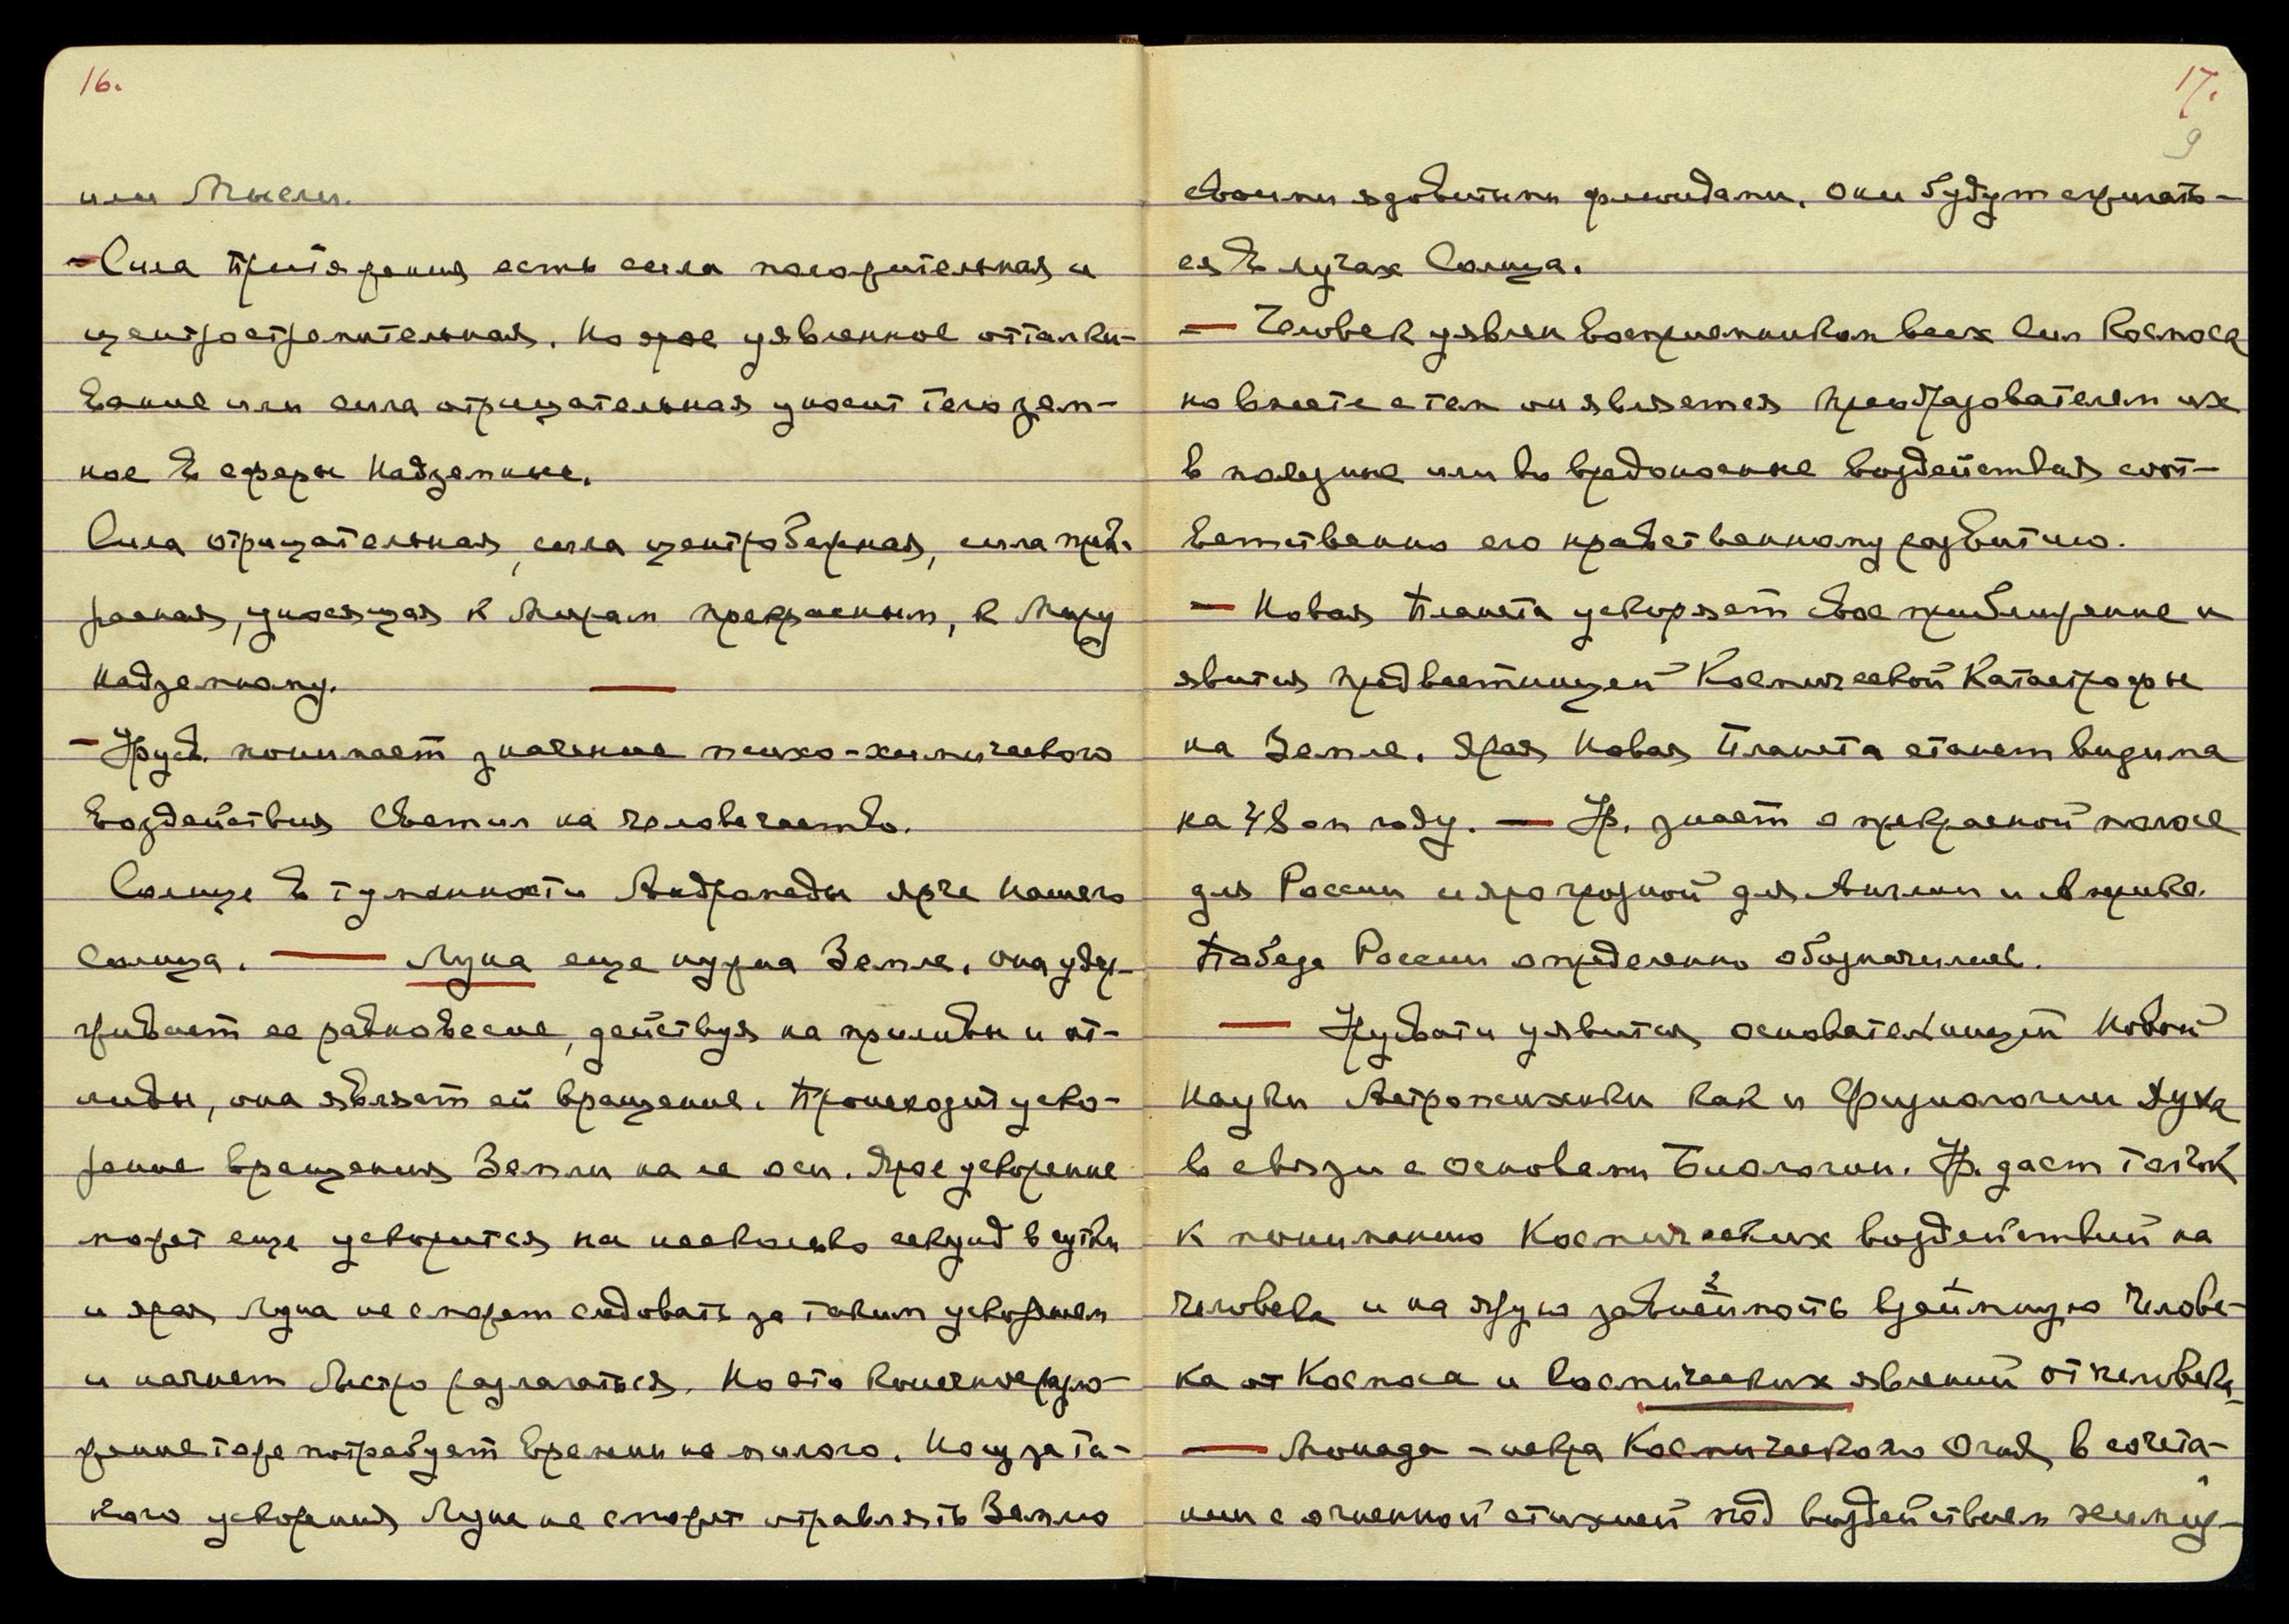 16.
или Мысли.
— Сила притяжения есть сила положительная и
центростремительная. Но ярое уявленное отталки-
вание или сила отрицательная уносит тело зем-
ное в сферы Надземные.
Сила отрицательная, сила центробежная, сила прек-
расная, уносящая к Мирам прекрасным, к Миру
Надземному. —
— Урусв. понимает значение психо-химического
воздействия Светил на человечество.
Солнце в туманности Андромеды ярче нашего
солнца. — Луна еще нужна Земле. Она удер-
живает ее равновесие, действуя на приливы и от-
ливы, она являет ей вращение. Происходит уско-
рение вращения Земли на ее оси. Ярое ускорение
может еще ускориться на несколько секунд в сутки
и ярая Луна не сможет следовать за таким ускорением
и начнет быстро разлагаться. Но это
тоже потребует времени не малого. Из за та-
кого ускорения Луна не сможет отравлять Землю
17.
9
своими ядовитыми флюидами. Они будут сжигать-
ся в лучах Солнца.
— Человек уявлен восприемником всех Сил Космоса
но вместе с тем он является преобразователем их
в полезные или во вредоносные воздействия соот-
ветственно его нравственному развитию.
— Новая Планета ускоряет свое приближение и
явится предвестницей Космической Катастрофы
на Земле. Ярая Новая Планета станет видима
на 48 ом году. — Ур. знает о прекрасной полосе
для России и яро грозной для Англии и Америке.
Победа России определенно обозначилась.
— Урусвати уявится основательницей Новой
Науки Астрохимии как и Физиологии Духа
в связи с основами Биологии. Ур. дает толчок
к пониманию Космических воздействий на
человека и на ярую зависимость взаимную Челове-
ка от Космоса и Космических явлений от человека.
— Монада – искра Космического Огня, в сочета-
нии с огненной стихией под воздействием химиз-